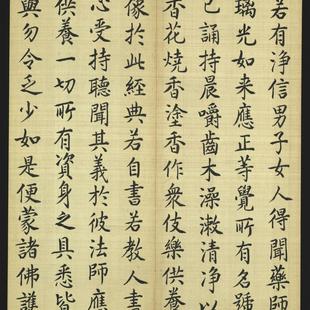 若有浄信男子女人得聞藥師
璃光如来應正等覺所有名号
已誦持晨嚼齒木澡漱清净以
香花燒香塗香作衆伎樂供養
像於此經典若自書若教人書
心受持聽聞其義於彼法師應
供養一切所有資身之具悉皆
與勿令乏少如是便蒙諸佛護